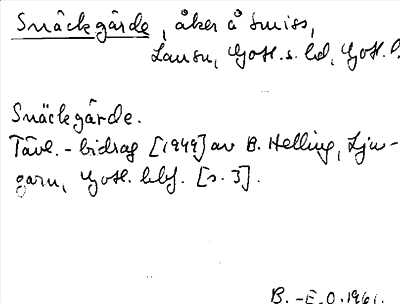 Snäckgärde, åker å Smiss,
Lausu, Gotl. s. hd, Gotl. l.
Snäckgärde.
Tävl.-bidrag [1949] av B. Helling, Lju-
garn, Gotl. bbf. [s. 3].
B.-E. O. 1961.